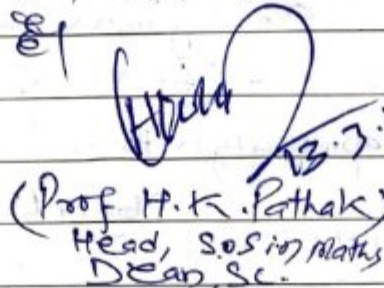 है।
23.3.
(Prof H.K.Pathak)
Head, S.O.S in Maths
Dean, Sc.